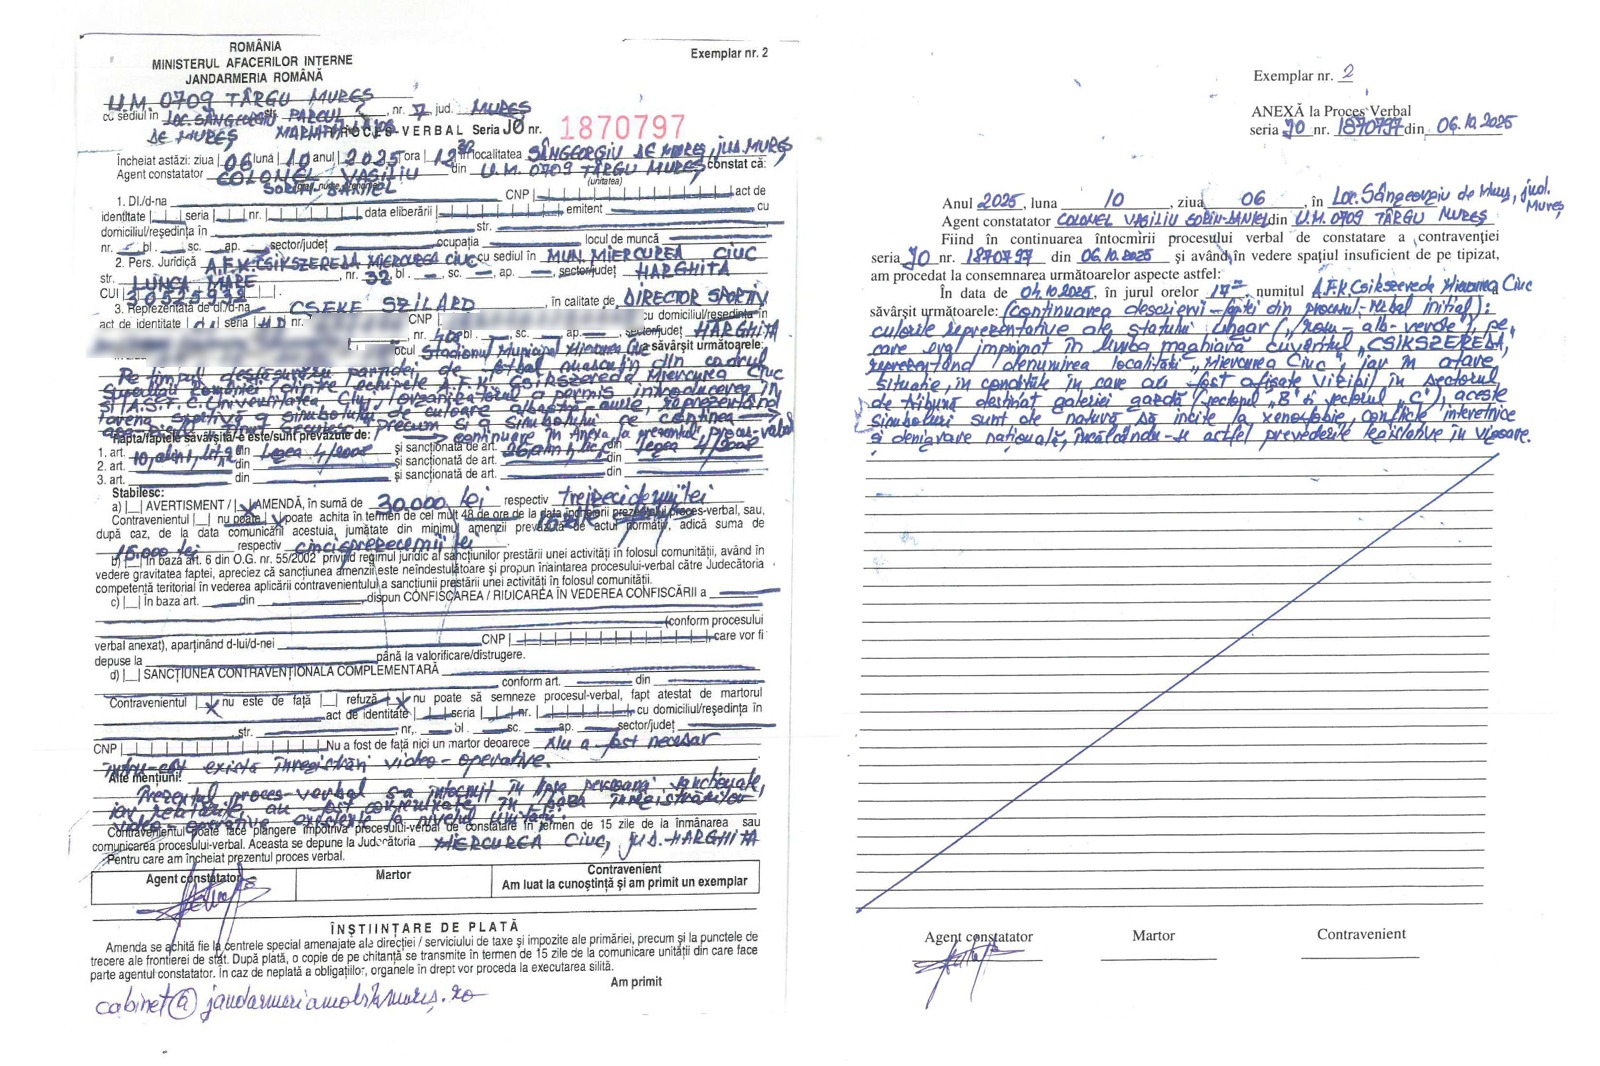 ROMÂNIA
MINISTERUL AFACERILOR INTERNE
JANDARMERIA ROMÂNĂ
Exemplar nr. 2
U.M. 0709 TÂRGU MUREȘ
cu sediul în LOC. SÂNGEORGIU PARCUL, nr. 7 jud. MUREȘ
DE MUREȘ
PROCES-VERBAL Seria JO nr. 1870797
Încheiat astăzi: ziua 06 luna 10 anul 2025 ora 12 localitatea SÂNGEORGIU DE MUREȘ, JUD. MUREȘ
Agent constatator COLONEL VASILIU din U.M. 0709 TÂRGU MUREȘ constat că:
SORIN DANIEL (unitatea)
1. Dl./d-na CNP act de
identitate seria nr. data eliberării emitent cu
domiciliul/reședința în str.
nr. bl. sc. ap. sector/județ ocupația locul de muncă
2. Pers. Juridică A.F.K. CSIKSZEREDA MIERCUREA CIUC cu sediul în MUN. MIERCUREA CIUC
str. LUNCA MARE, nr. 32 bl. sc. ap. sector/județ HARGHITA
CUI 30525932
3. Reprezentată de dl./d-na CSEKE SZILARD, în calitate de DIRECTOR SPORTIV
act de identitate seria HD nr. CNP cu domiciliul/reședința în
bl. sc. ap. sector/județ HARGHITA
locul Stadionul Municipal Miercurea Ciuc a săvârșit următoarele:
Pe timpul desfășurării partidei de fotbal masculin din cadrul
Superligii României, dintre echipele A.F.K. Csikszereda Miercurea Ciuc
și A.S.F.C. Universitatea Cluj, organizatorul a permis introducerea în
arena sportivă a simbolului de culoare albastru-auriu, reprezentând
precum și a simbolului ce conținea
continuare în Anexa la prezentul proces-verbal
Fapta/faptele săvârșită/e este/sunt prevăzute de:
1. art. 10, alin 1, lit. din Legea 4/2008 și sancționată de art. din Legea 4/2008
2. art. din și sancționată de art. din
3. art. din și sancționată de art. din
Stabilesc:
a) |_| AVERTISMENT / |X| AMENDĂ, în sumă de 30.000 lei respectiv treizeci de mii lei
Contravenientul |_| nu poate |X| poate achita în termen de cel mult 48 de ore de la data încheierii prezentului proces-verbal, sau,
după caz, de la data comunicării acestuia, jumătate din minimul amenzii prevăzute de actul normativ, adică suma de
15.000 lei respectiv cincisprezece mii lei
b) |_| în baza art. 6 din O.G. nr. 55/2002 privind regimul juridic al sancțiunilor prestării unei activități în folosul comunității, având în
vedere gravitatea faptei, apreciez că sancțiunea amenzii este neîndestulătoare și propun înaintarea procesului-verbal către Judecătoria
competentă teritorial în vederea aplicării contravenientului a sancțiunii prestării unei activități în folosul comunității.
c) |_| în baza art. din , dispun CONFISCAREA / RIDICAREA ÎN VEDEREA CONFISCĂRII a
(conform procesului
verbal anexat), aparținând d-lui/d-nei CNP care vor fi
depuse la până la valorificare/distrugere.
d) |_| SANCȚIUNEA CONTRAVENȚIONALĂ COMPLEMENTARĂ
conform art. din
Contravenientul |X| nu este de față |_| refuză |X| nu poate să semneze procesul-verbal, fapt atestat de martorul
act de identitate seria nr. cu domiciliul/reședința în
str. nr. bl. sc. ap. sector/județ
CNP Nu a fost de față nici un martor deoarece Nu a fost necesar
întru-cât există înregistrări video-operative.
Alte mențiuni:
Prezentul proces-verbal s-a întocmit în lipsa persoanei sancționate,
iar au fost constatate în baza înregistrărilor
video-operative existente la nivelul unității.
Contravenientul poate face plângere împotriva procesului-verbal de constatare în termen de 15 zile de la înmânarea sau
comunicarea procesului-verbal. Aceasta se depune la Judecătoria MIERCUREA CIUC, JUD. HARGHITA
Pentru care am încheiat prezentul proces verbal.
Agent constatator
Martor
Contravenient
Am luat la cunoștință și am primit un exemplar
ÎNȘTIINȚARE DE PLATĂ
Amenda se achită fie la centrele special amenajate ale direcției / serviciului de taxe și impozite ale primăriei, precum și la punctele de
trecere ale frontierei de stat. După plată, o copie de pe chitanță se transmite în termen de 15 zile de la comunicare unității din care face
parte agentul constatator. În caz de neplată a obligațiilor, organele în drept vor proceda la executarea silită.
Am primit
Exemplar nr. 2
ANEXĂ la Proces Verbal
seria JO nr. 1870797 din 06.10.2025
Anul 2025, luna 10, ziua 06, în Loc. Sângeorgiu de Mureș, jud. Mureș
Agent constatator COLONEL VASILIU SORIN-DANIEL din U.M. 0709 TÂRGU MUREȘ
Fiind în continuarea întocmirii procesului verbal de constatare a contravenției
seria JO nr. 1870797 din 06.10.2025 și având în vedere spațiul insuficient de pe tipizat,
am procedat la consemnarea următoarelor aspecte astfel:
În data de 04.10.2025, în jurul orelor 17, numitul A.F.K Csikszereda Miercurea Ciuc
săvârșit următoarele: (continuarea descrierii faptei din procesul-verbal inițial):
culorile reprezentative ale statului Ungar ("roșu-alb-verde"), pe
care era imprimat în limba maghiară cuvântul "CSIKSZEREDA",
reprezentând denumirea localității "Miercurea Ciuc", iar în atare
situație, în condițiile în care au fost afișate vizibil în sectorul
de tribună destinat galeriei gazdă (sectorul "B" și sectorul "C"), aceste
simboluri sunt de natură să incite la xenofobie, conflicte interetnice
și denigrare națională, încălcându-se astfel prevederile legislative în vigoare.
Agent constatator
Martor
Contravenient